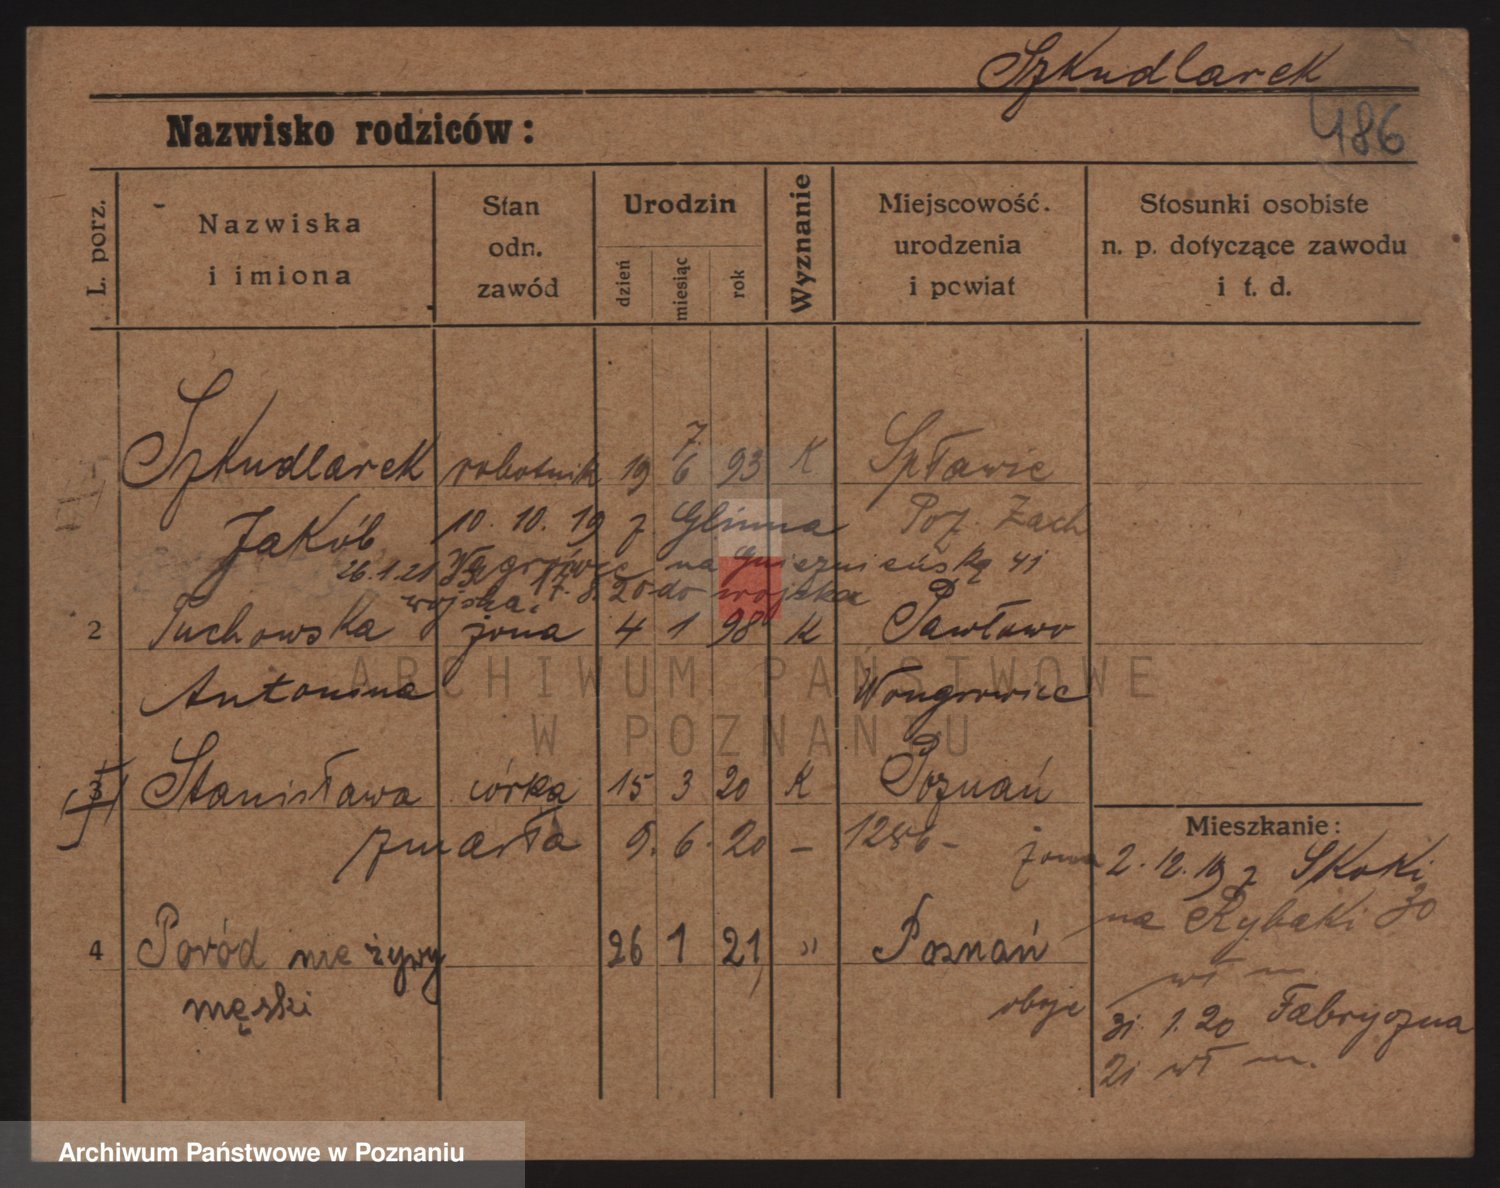 Szkudlarek
486
Nazwisko rodziców:
L. porz.
Nazwiska
i imiona
Stan
odn.
zawód
Urodzin
dzień
miesiąc
rok
Wyznanie
Miejscowość.
urodzenia
i powiat
Stosunki osobiste
n. p. dotyczące zawodu
i t. d.
7.
Szkudlarek robotnik 19 6 93 K Spławie
Jakób 10. 10. 19 z Glinna Poz. Zach
26.1.21 na Gnieznieńską 41
wojska. 17. 8. 20 do wojska
2 Puchowska żona 4 1 98 K Pawłowo
Antonina Wongrowiec
3 Stanisława córka 15 3 20 K Poznań
zmarła 9. 6. 20 – 1286 –
Mieszkanie:
żona 2. 12. 19 z Skoki
na Rybaki 30
wł m.
4 Poród nie żywy 26 1 21 " Poznań
męski
oboje 31. 1. 20 Fabryczna
21 wł m.
ARCHIWUM PAŃSTWOWE
W POZNANIU
Archiwum Państwowe w Poznaniu